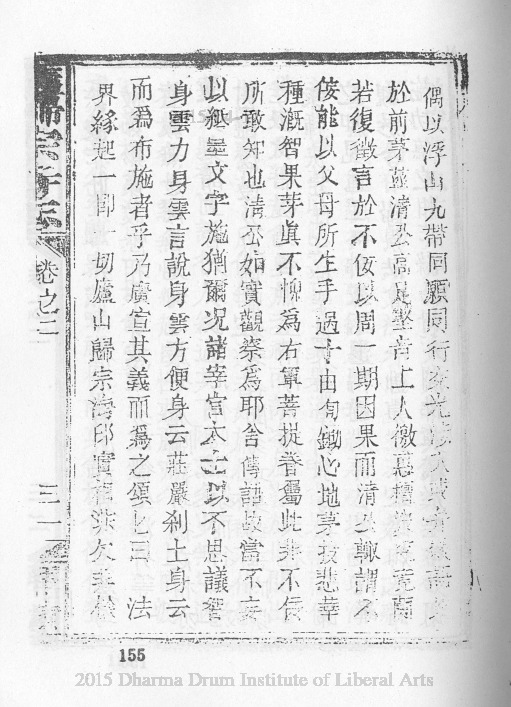 偶以浮山九帶同願同行交光
於前茅葢清公高足堅音上人徵
若復徵言於不佞以周一期因果而清公輙謂不
佞能以父母所生手過十由旬鋤心地茅孩悲華
種溉智果芽眞不慚爲右軍菩提眷屬此非不佞
所敢知也清公如實觀察爲耶舍傳語故當不妄
以紙墨文字施猶爾况諸宰官大士以不思議智
身雲力身雲言說身雲方便身云莊嚴刹土身云
而爲布施者乎乃廣宣其義而爲之頌匕曰 法
界緣起一卽一切廬山歸宗海印
歸宗寺志 卷之二 三一
155
2015 Dharma Drum Institute of Liberal Arts